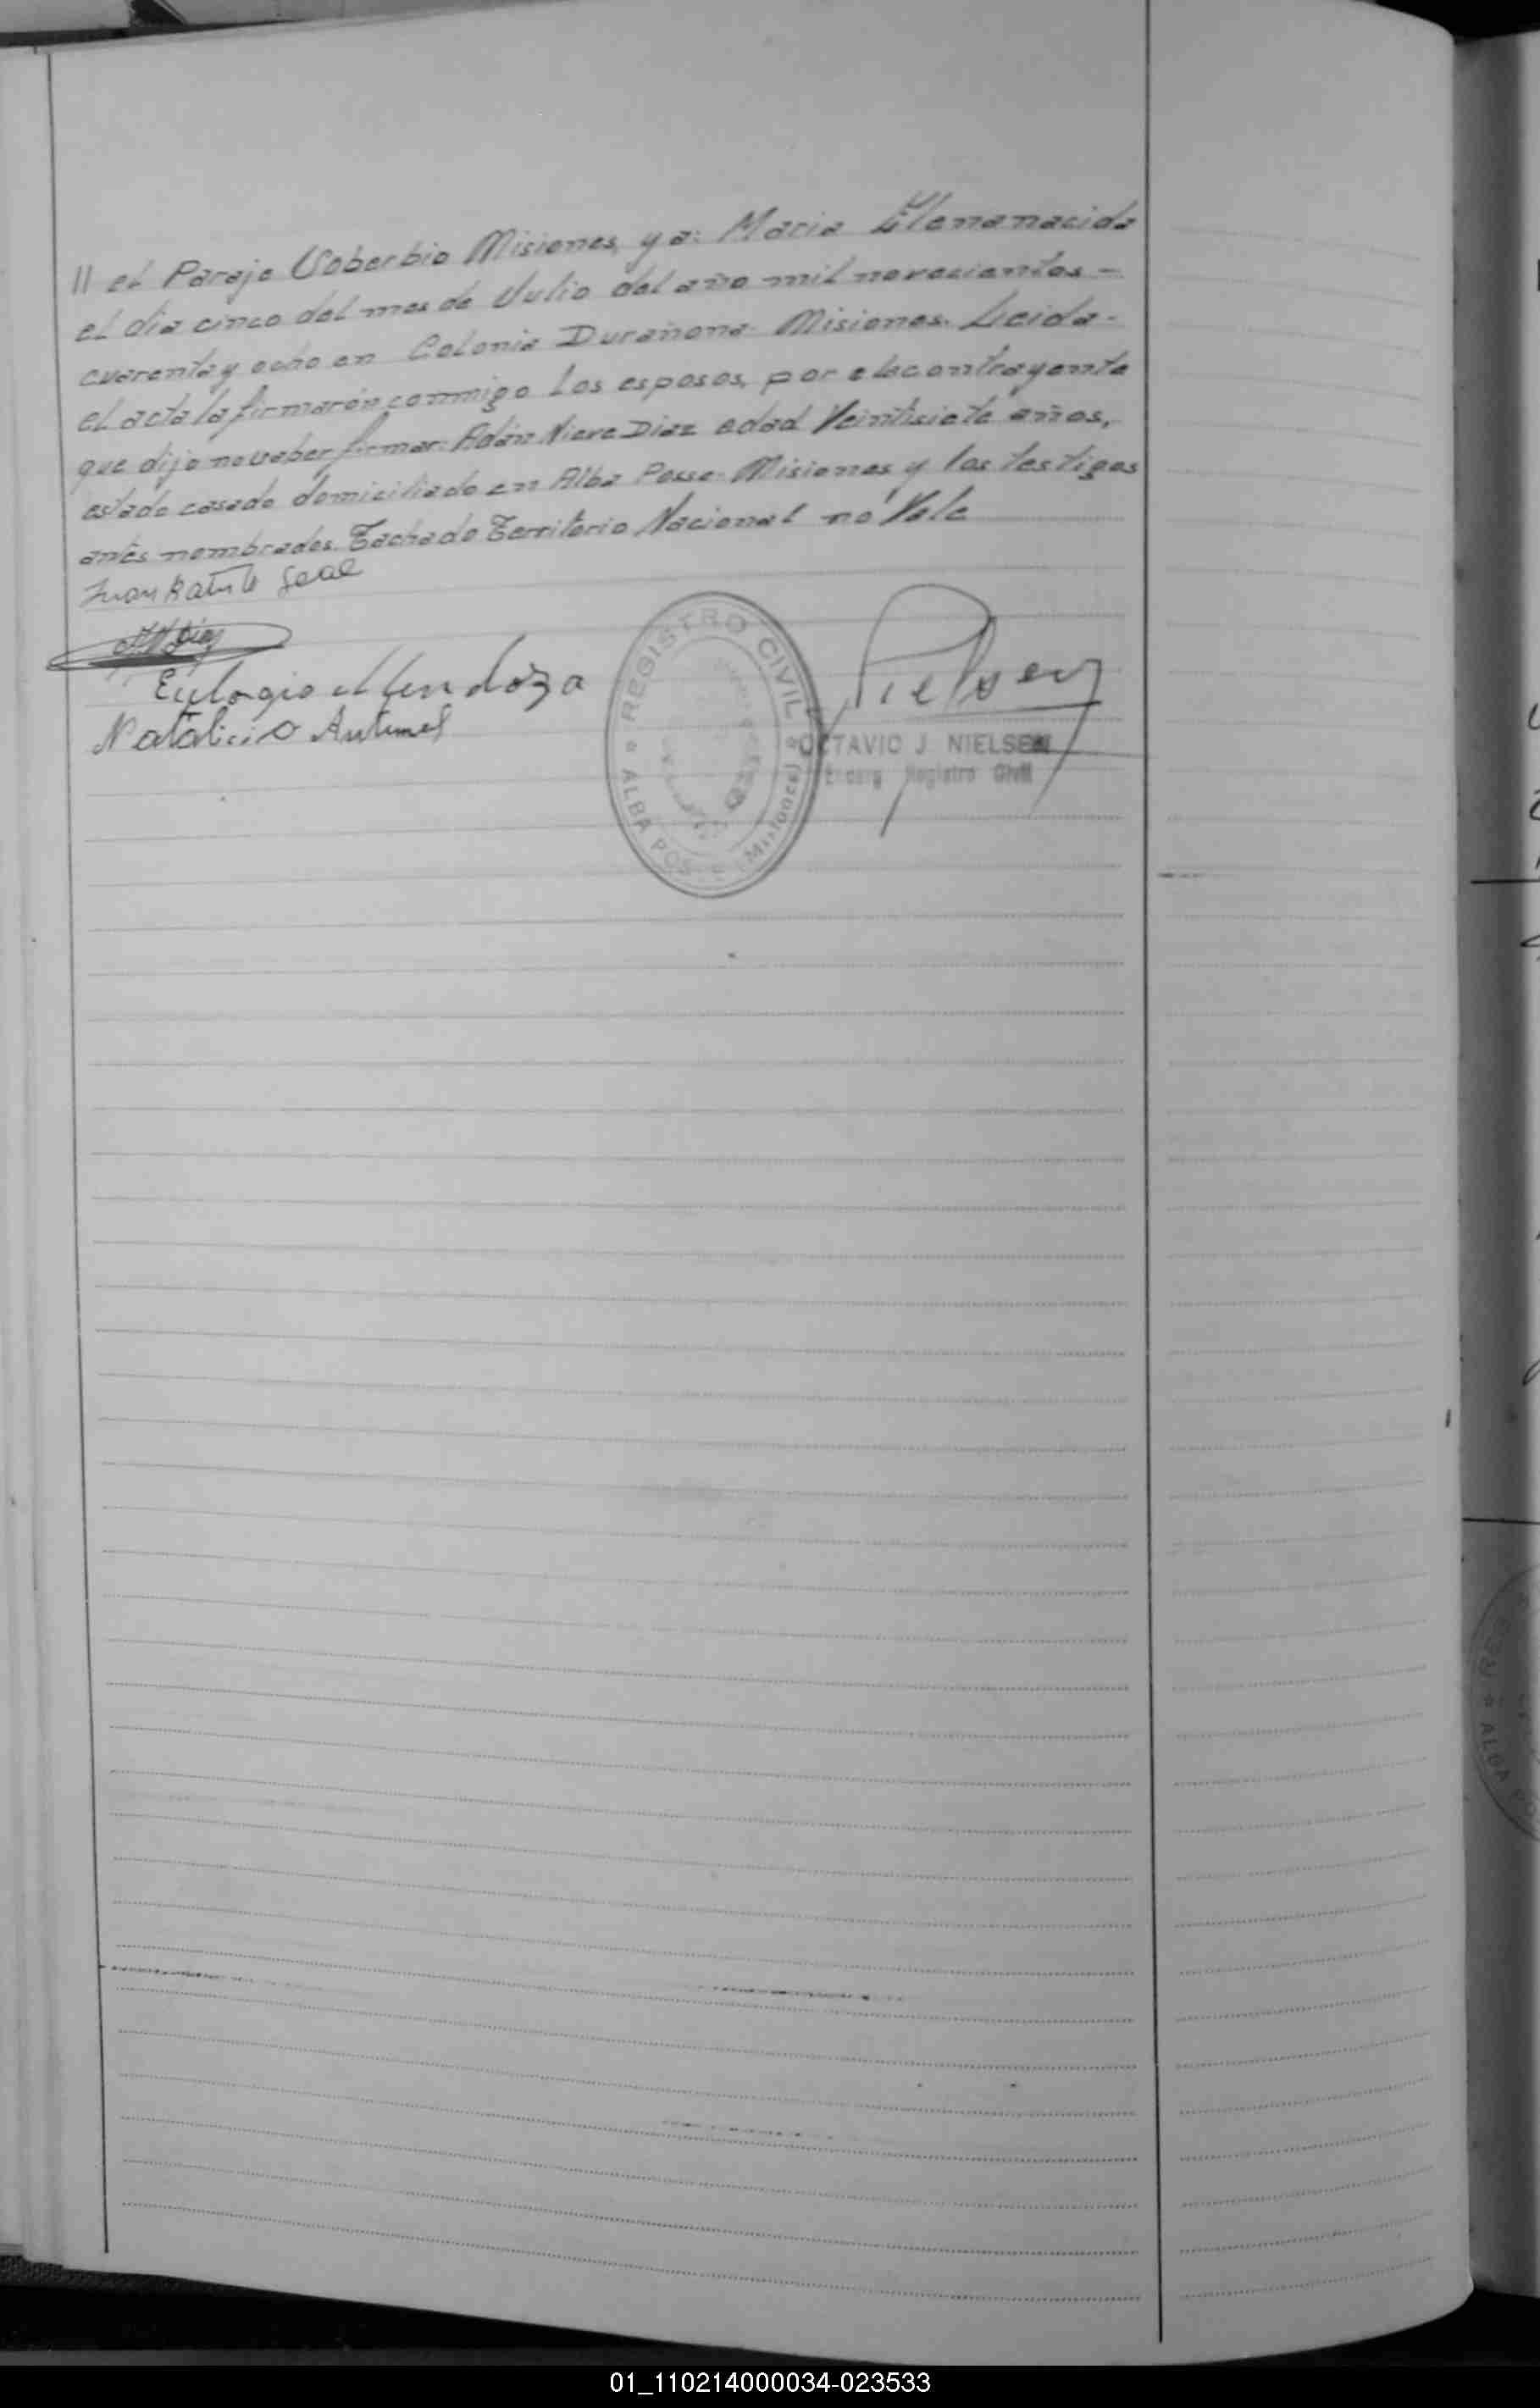 11 el Paraje Soberbio Misiones, y a: Maria Elena nacida
el dia cinco del mes de Julio del año mil novecientos -
cuarenta y ocho en Colonia Durañona - Misiones. Leida -
el acta la firmarón conmigo los esposos, por el contrayente
que dijo no saber firmar: Adán Nieve Diaz edad Veintisiete años,
estado casado domiciliado en Alba Posse - Misiones y los testigos
antes nombrados. Tachado Territorio Nacional no Vale
Juan
Diaz
Eulogio Mendoza
Natalicio Antunes
REGISTRO CIVIL
ALBA POSSE (Misiones)
Nielsen
OCTAVIO J. NIELSEN
Encarg. Registro Civil
ALBA PO
01_110214000034-023533